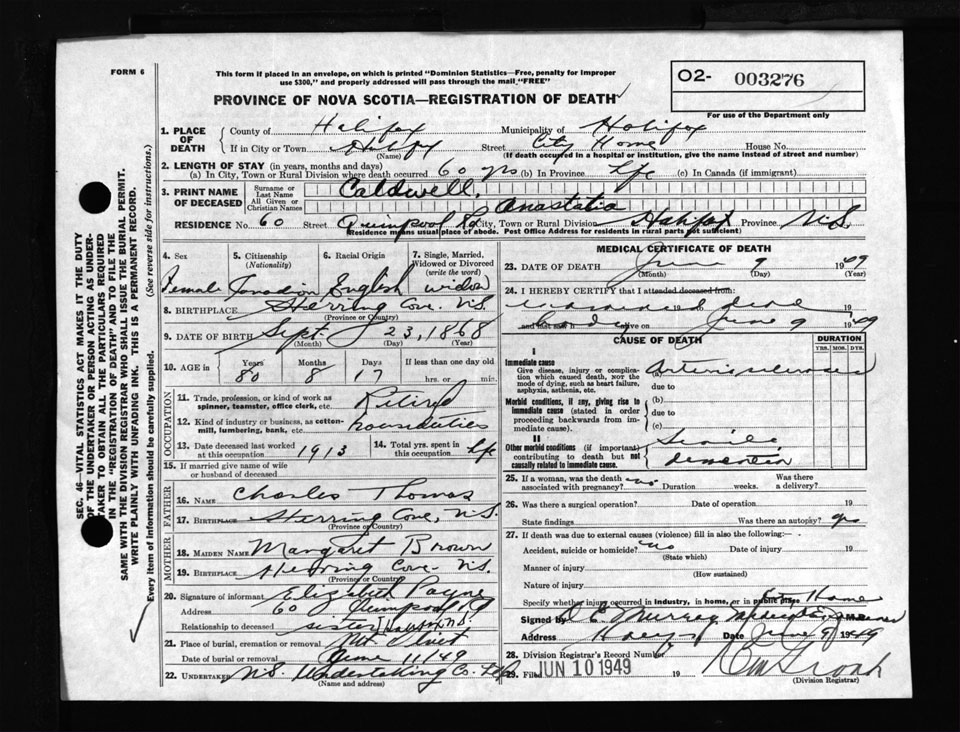 FORM 6
This form if placed in an envelope, on which is printed "Dominion Statistics—Free, penalty for improper
use $300," and properly addressed will pass through the mail "FREE"
PROVINCE OF NOVA SCOTIA—REGISTRATION OF DEATH
O2- 003276
For use of the Department only
1. PLACE OF DEATH
County of Halifax Municipality of Halifax
If in City or Town Halifax Street City Home House No.
(Name) (If death occurred in a hospital or institution, give the name instead of street and number)
2. LENGTH OF STAY (in years, months and days)
(a) In City, Town or Rural Division where death occurred 60 yrs (b) In Province Life (c) In Canada (if immigrant)
3. PRINT NAME OF DECEASED
Surname or Last Name Caldwell,
All Given or Christian Names Anastatia
RESIDENCE No. 60 Street Quinpool Rd City, Town or Rural Division Halifax Province N.S.
Residence means usual place of abode. Post Office Address for residents in rural parts not sufficient)
4. Sex Female
5. Citizenship (Nationality) Canadian
6. Racial Origin English
7. Single, Married, Widowed or Divorced (write the word) widow
8. BIRTHPLACE Herring Cove N.S.
(Province or Country)
9. DATE OF BIRTH Sept. 23, 1868
(Month) (Day) (Year)
10. AGE in Years 80 Months 8 Days 17 If less than one day old
hrs. or min.
OCCUPATION
11. Trade, profession, or kind of work as spinner, teamster, office clerk, etc. Retired
12. Kind of industry or business, as cotton-mill, lumbering, bank, etc. houseduties
13. Date deceased last worked at this occupation 1913
14. Total yrs. spent in this occupation Life
15. If married give name of wife or husband of deceased
FATHER
16. NAME Charles Thomas
17. BIRTHPLACE Herring Cove, N.S.
(Province or Country)
MOTHER
18. MAIDEN NAME Margaret Brown
19. BIRTHPLACE Herring Cove N.S.
(Province or Country)
20. Signature of informant Elizabeth Payne
Address 60 Quinpool Rd
Relationship to deceased sister
21. Place of burial, cremation or removal Mt. Olivet
Date of burial or removal June 11/49
22. UNDERTAKER N.S. Undertaking Co. Ltd
(Name and address)
MEDICAL CERTIFICATE OF DEATH
23. DATE OF DEATH June 9 1949
(Month) (Day) (Year)
24. I HEREBY CERTIFY that I attended deceased from:
19
and last saw h alive on June 9 1949
CAUSE OF DEATH
DURATION
YRS. MOS. DYS.
I
Immediate cause
Give disease, injury or complication which caused death, not the mode of dying, such as heart failure, asphyxia, asthenia, etc.
(a) Arteriosclerosis
due to
Morbid conditions, if any, giving rise to immediate cause (stated in order proceeding backwards from immediate cause).
(b)
due to
(c)
II
Other morbid conditions (if important) contributing to death but not causally related to immediate cause.
Senile
dementia
25. If a woman, was the death associated with pregnancy? no Duration weeks. Was there a delivery?
26. Was there a surgical operation? Date of operation 19
State findings Was there an autopsy?
27. If death was due to external causes (violence) fill in also the following:—
Accident, suicide or homicide? no Date of injury 19
(State which)
Manner of injury
(How sustained)
Nature of injury
Specify whether injury occurred in industry, in home, or in public place
Signed by
Address Date June 9 1949
28. Division Registrar's Record Number
29. Filed JUN 10 1949 19
(Division Registrar)
SEC. 46—VITAL STATISTICS ACT MAKES IT THE DUTY
OF THE UNDERTAKER OR PERSON ACTING AS UNDER-
TAKER TO OBTAIN ALL THE PARTICULARS REQUIRED
IN THE "REGISTRATION OF DEATH" AND TO FILE THE
SAME WITH THE DIVISION REGISTRAR WHO SHALL ISSUE THE BURIAL PERMIT.
WRITE PLAINLY WITH UNFADING INK. THIS IS A PERMANENT RECORD.
Every item of information should be carefully supplied. (See reverse side for instructions.)